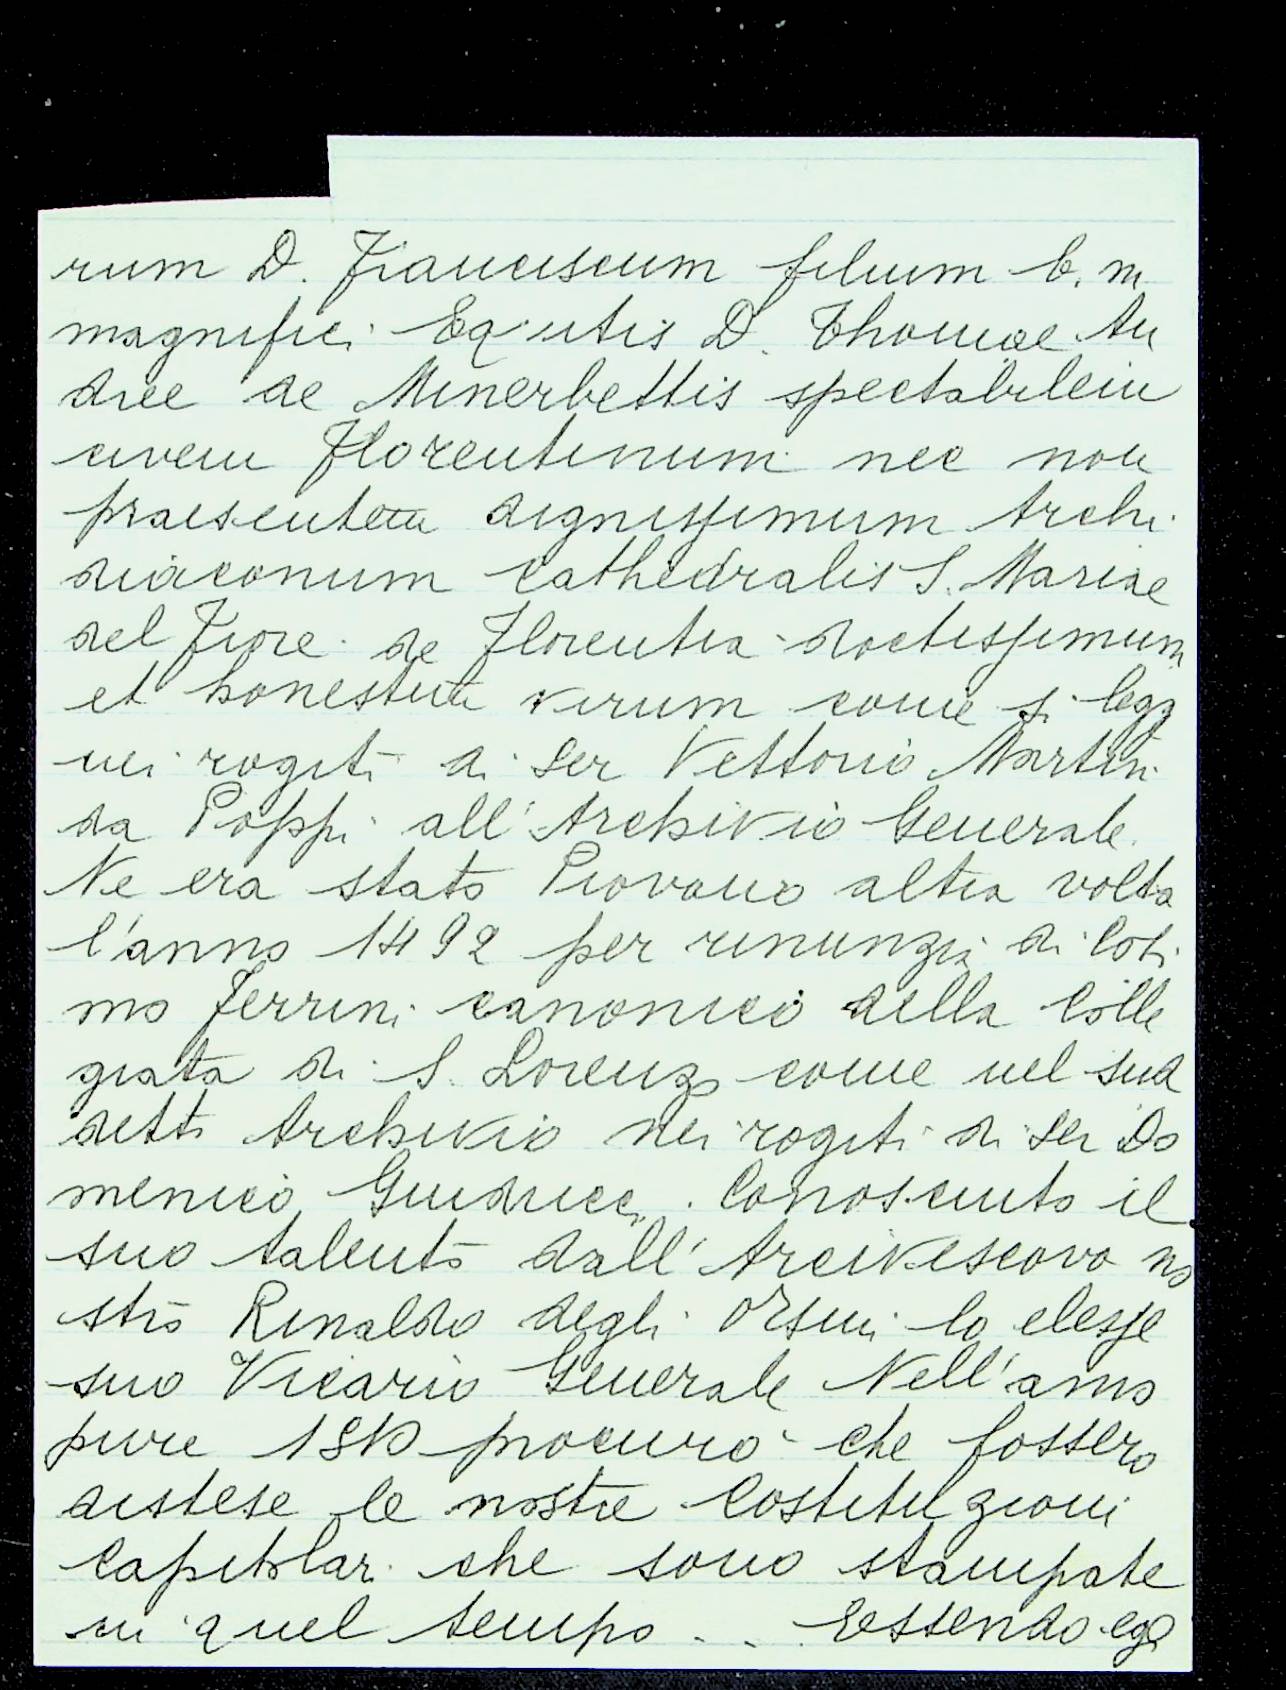 rum D. Franciscum filium b. m.
magnifici Equitis D. Thomae An
dree de Minerbettis spectabilem
civem Florentinum nec non
praesentem dignissimum Archi
diaconum Cathedralis S. Mariae
del Fiore de Florentia doctissimum
et honestum virum come si legg
nei rogiti di Ser Vettorio Martini
da Poppi all'Archivio Generale.
Ne era stato Piovano altra volta
l'anno 1492 per rinunzia di Cosi
mo Ferrini canonico della Colle
giata di S. Lorenzo come nel sud
detto Archivio nei rogiti di ser Do
menico Guiducci. Conosciuto il
suo talento dall'Arcivescovo no
stro Rinaldo degli Orsini lo elesse
suo Vicario Generale Nell'anno
pure procurò che fossero
distese le nostre Costituzioni
Capitolari che sono stampate
in quel tempo ... Essendo egli